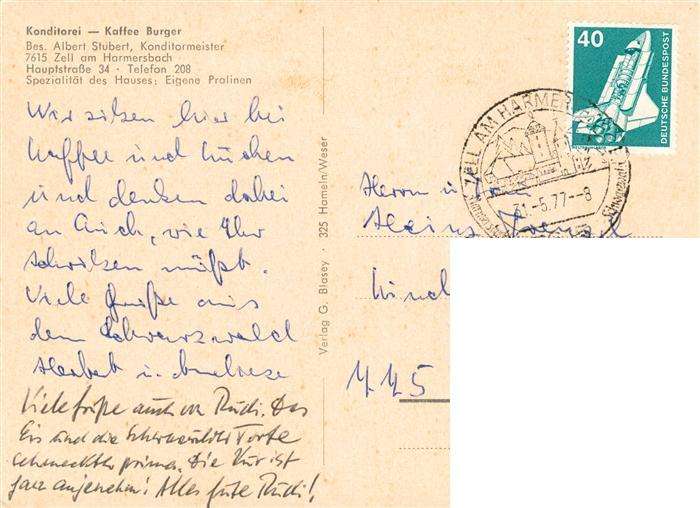 Konditorei — Kaffee Burger
Bes. Albert Stubert, Konditormeister
7615 Zell am Harmersbach
Hauptstraße 34 · Telefon 208
Spezialität des Hauses: Eigene Pralinen
Wir sitzen hier bei
Kaffee und Kuchen
und denken dabei
an Euch, wie Ihr
schwitzen müßt.
Viele Grüße aus
dem Schwarzwald
Herbert u.
Viele Grüße auch von Rudi. Das
Eis und die Schwarzwälder Torte
schmeckten prima. Die Kur ist
ganz angenehm! Alles Gute Rudi!
Verlag G. Blasey 325 Hameln/Weser
40
DEUTSCHE BUNDESPOST
ZELL AM HARMERSBACH
31.-5.77--8
Herrn u.
Heinz